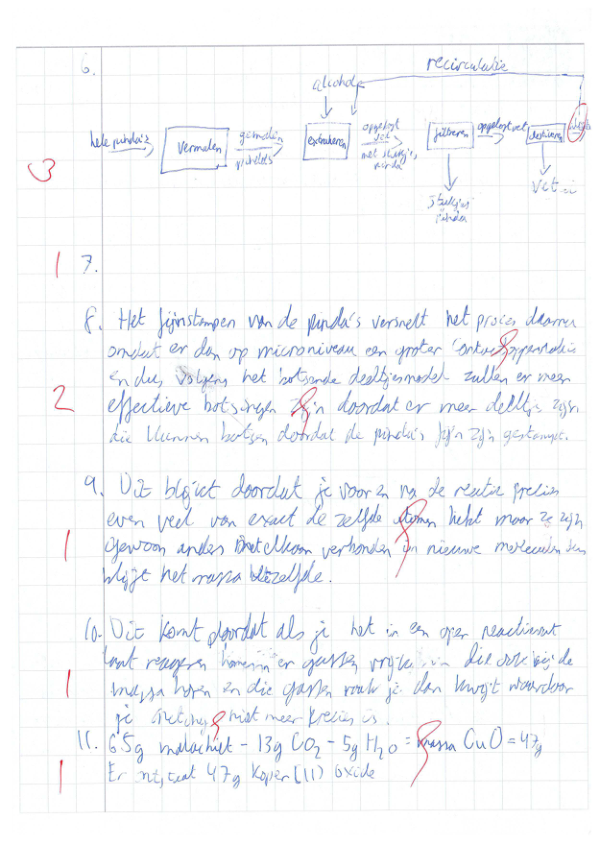 6.
recirculatie
alcohol
hele pinda's
vermalen
gemalen
pinda's
extraheren
opgelost
vet
met stukjes
pinda
filtreren
opgelost vet
destilleren
stukjes
pinda
vet
3
1 7.
8. Het fijnstampen van de pinda's versnelt het proces daarom
omdat er dan op microniveau een groter
en dus volgens het botsende deeltjesmodel zullen er meer
2 effectieve botsingen zijn doordat er meer deeltjes zijn
die kunnen botsen doordat de pinda's fijn zijn gestampt.
9. Dit blijkt doordat je voor en na de reactie precies
even veel van exact de zelfde atomen hebt maar ze zijn
1 gewoon anders met elkaar verbonden in nieuwe moleculen dus
blijft het massa hetzelfde.
10. Dit komt doordat als je het in een open
laat reageren komen er gassen vrij die ook bij de
1 massa horen en die gassen raak je dan kwijt waardoor
je meting niet meer precies is.
11. 65g malachiet - 13g CO2 - 5g H2O = massa CuO = 47g
1 Er ontstaat 47g koper (II) oxide